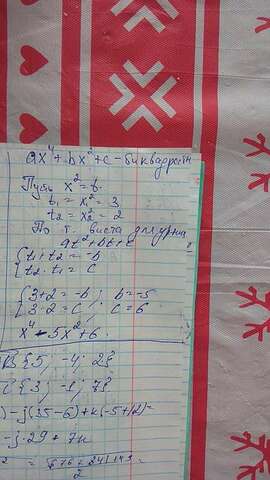 ax⁴ + bx² + c - биквадратн
Пусть x² = t.
t₁ = x₁² = 3
t₂ = x₂² = 2
По т. Виета для урна
at² + bt + c
{t₁ + t₂ = -b
{t₂ · t₁ = c
{3 + 2 = -b ; b = -5
{3 · 2 = c ; c = 6
x⁴ - 5x² + 6.
B{5; -4; 2}
C{3; -1; 7}
) - j(35 - 6) + k(-5 + 12) =
- j · 29 + 7k